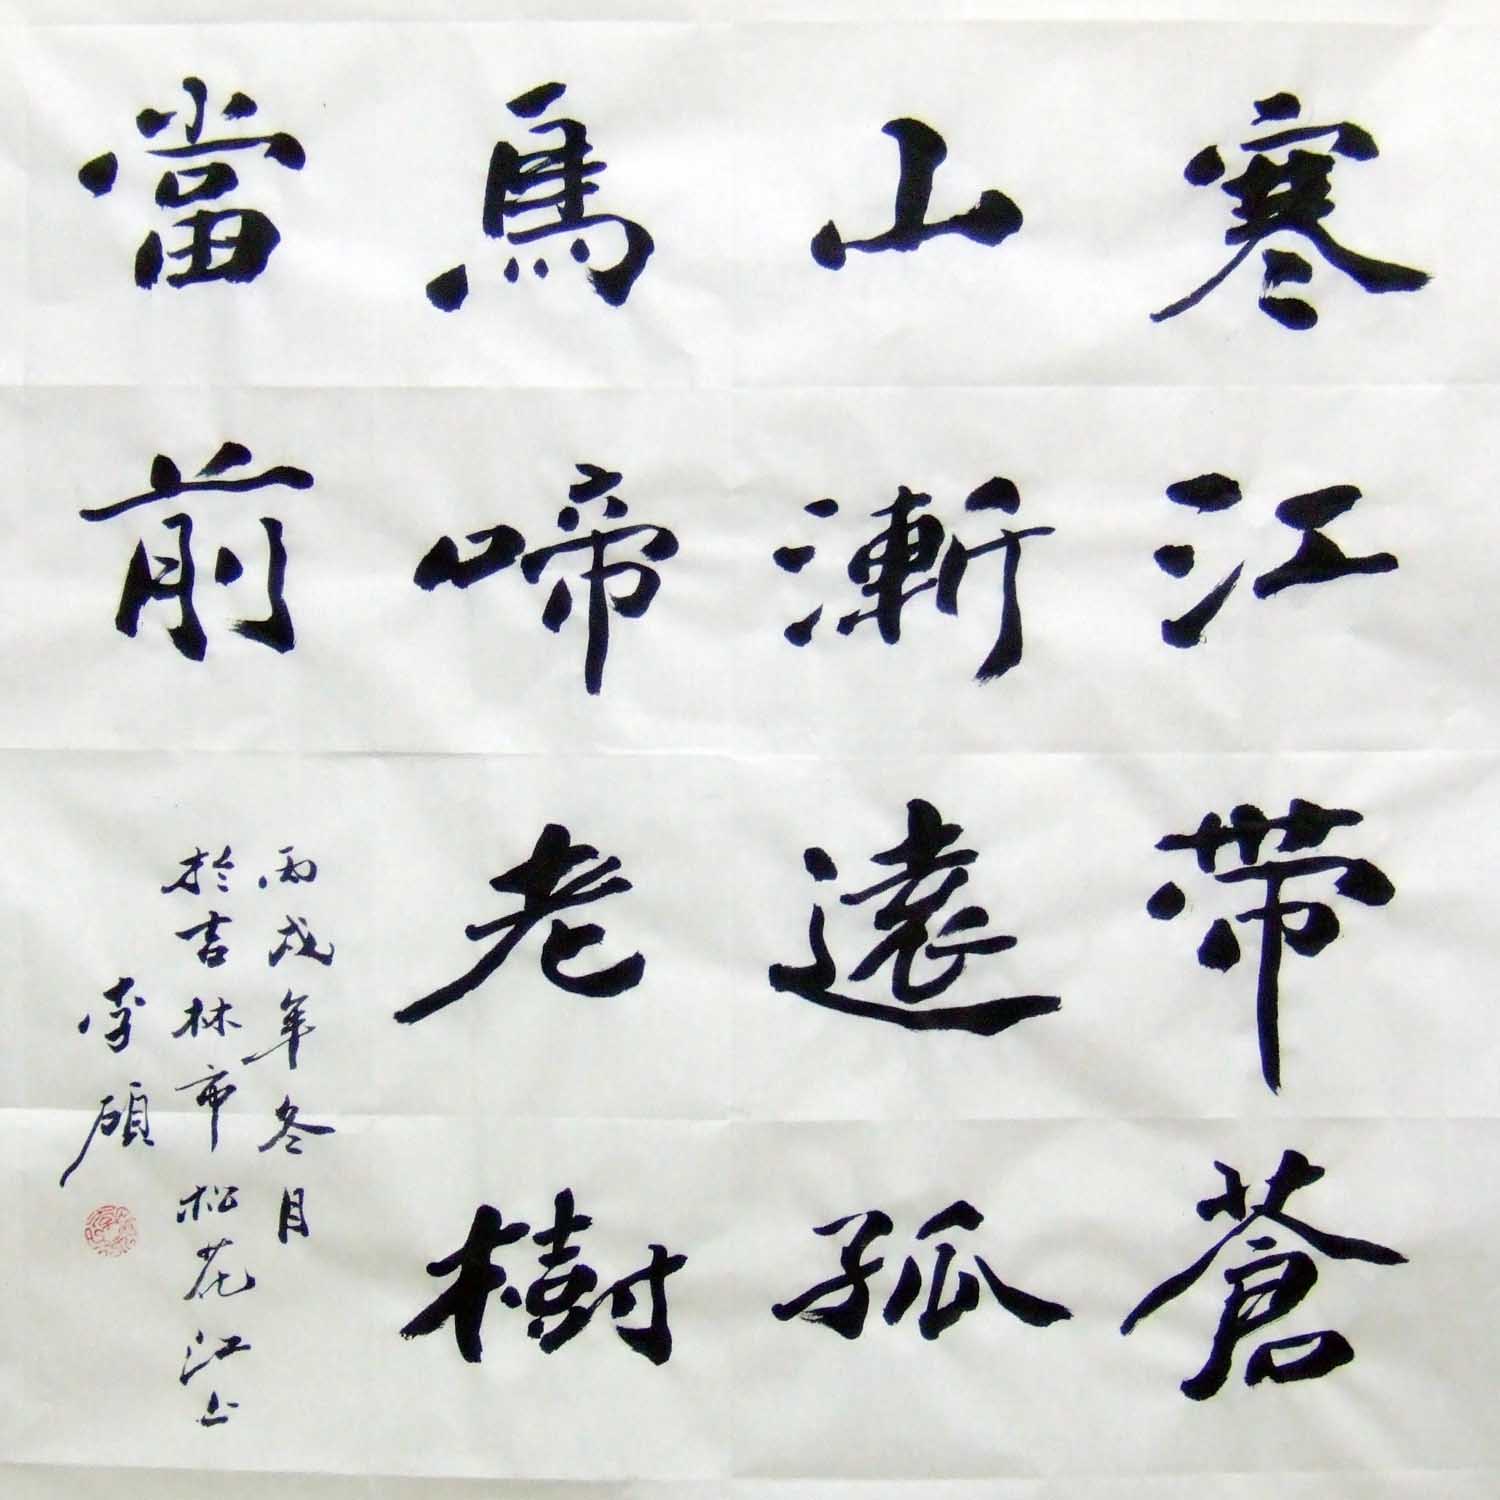 寒江帶蒼
山漸遠孤
鳥啼老樹
當前
丙戌年冬月
於吉林市松花江上
李碩